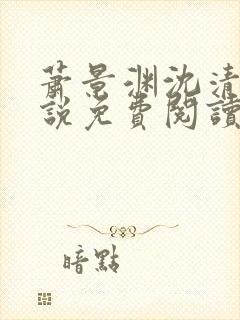 蕭景渊沈清
說免費閱讀
暗點